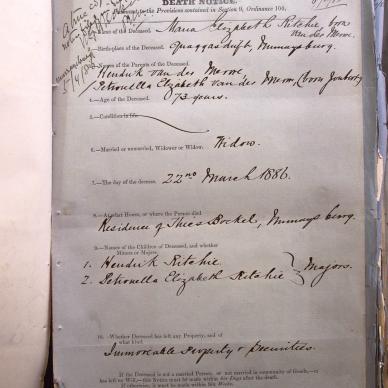 DEATH NOTICE.
Pursuant to the Provisions contained in Section 9, Ordinance 104,
1.—Name of the Deceased. Maria Elizabeth Ritchie, born
van der Merwe.
2.—Birth-place of the Deceased. Quaggasdrift, Murraysburg.
3.—Names of the Parents of the Deceased.
Hendrik van der Merwe,
Petronella Elizabeth van der Merwe (born Joubert)
4.—Age of the Deceased. 73 years.
5.—Condition in life.
6.—Married or unmarried, Widower or Widow. Widow.
7.—The day of the decease. 22nd March 1886.
8.—At what House, or where the Person died
Residence of Murraysburg.
9.—Names of the Children of Deceased, and whether
Minors or Majors.
1. Hendrik Ritchie
2. Petronella Elizabeth Ritchie } Majors.
10.—Whether Deceased has left any Property, and of
what kind.
Immovable Property & Securities.
If the Deceased is not a married Person, or not married in community of Goods,—or
has left no Will,—this Notice must be made within six Days after the death.
If otherwise, it must be made within Six Weeks.